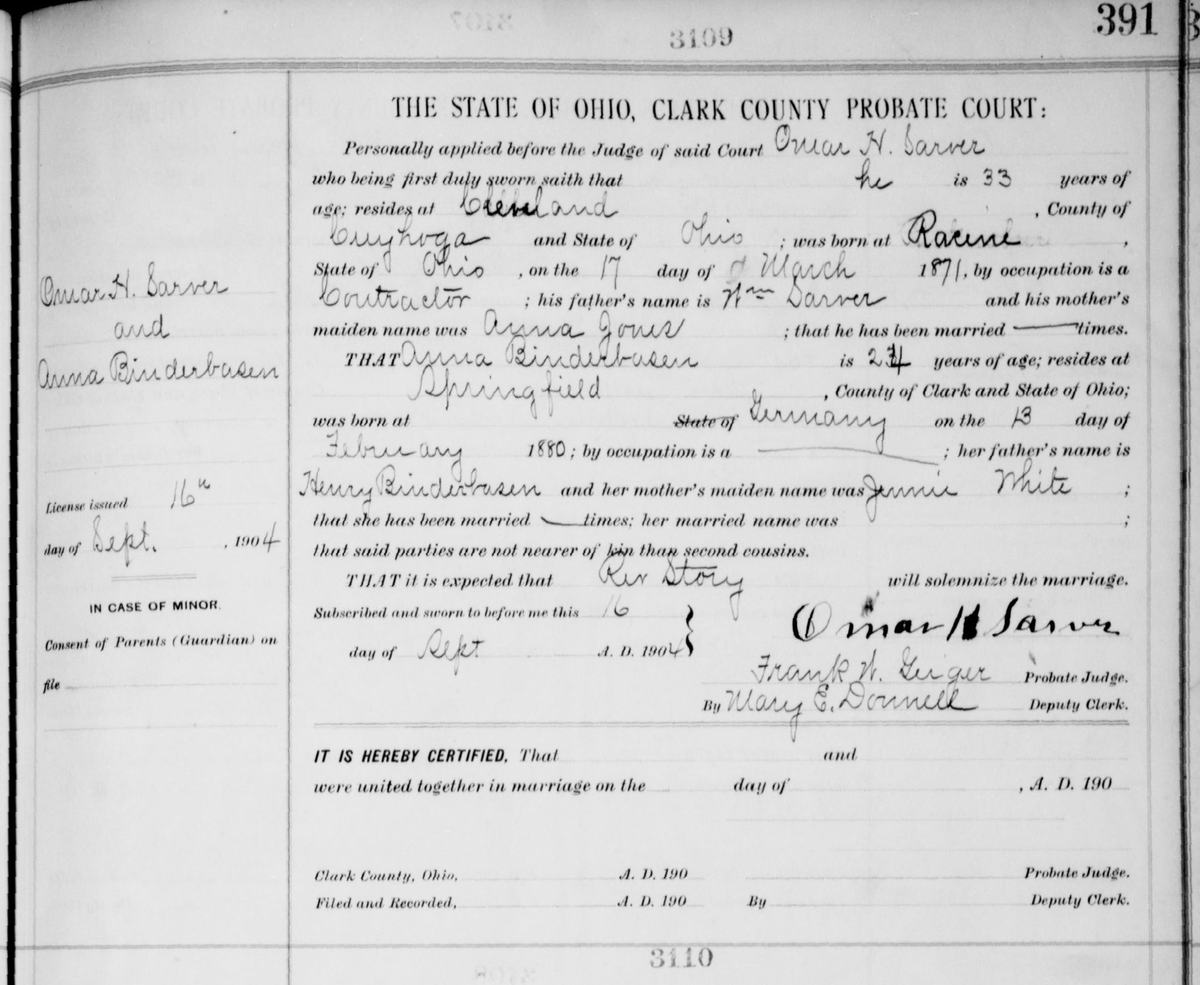 391
3109
THE STATE OF OHIO, CLARK COUNTY PROBATE COURT:
Personally applied before the Judge of said Court Omar H. Sarver
who being first duly sworn saith that he is 33 years of
age; resides at Cleveland, County of
Cuyhoga and State of Ohio; was born at Racine,
State of Ohio, on the 17 day of March 1871, by occupation is a
Contractor; his father's name is Wm Sarver and his mother's
maiden name was Anna Jones; that he has been married — times.
THAT Anna Binderbasen is 24 years of age; resides at
Springfield, County of Clark and State of Ohio;
was born at State of Germany on the 13 day of
February 1880; by occupation is a —; her father's name is
Henry Binderbasen and her mother's maiden name was Jennie White;
that she has been married — times; her married name was ;
that said parties are not nearer of kin than second cousins.
THAT it is expected that Rev Story will solemnize the marriage.
Subscribed and sworn to before me this 16
day of Sept A. D. 1904
Omar H Sarver
Frank W. Geiger Probate Judge.
By Mary E. Donnell Deputy Clerk.
Omar H. Sarver
and
Anna Binderbasen
License issued 16"
day of Sept., 1904
IN CASE OF MINOR.
Consent of Parents (Guardian) on
file
IT IS HEREBY CERTIFIED, That and
were united together in marriage on the day of , A. D. 190
Clark County, Ohio, A. D. 190 Probate Judge.
Filed and Recorded, A. D. 190 By Deputy Clerk.
3110